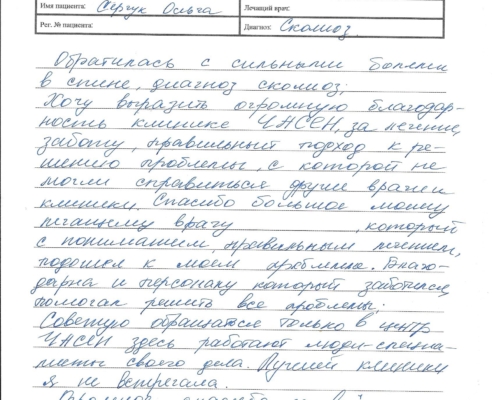 Имя пациента: Сергук Ольга Лечащий врач:
Рег. № пациента: Диагноз: Сколиоз
Обратилась с сильными болями
в спине, диагноз сколиоз,
Хочу выразить огромную благодар-
ность клинике ЧЖСЕН, за лечение,
заботу, правильный подход к ре-
шению проблемы, с которой не
могли справиться другие врачи и
клиники. Спасибо большое моему
лечащему врачу , который
с пониманием, правильным лечением,
подошел к моей проблеме. Благо-
дарна и персоналу который заботился,
помогал решить все проблемы.
Советую обращаться только в центр
ЧЖСЕН здесь работают люди-специа-
листы своего дела. Лучшей клиники
я не встречала.